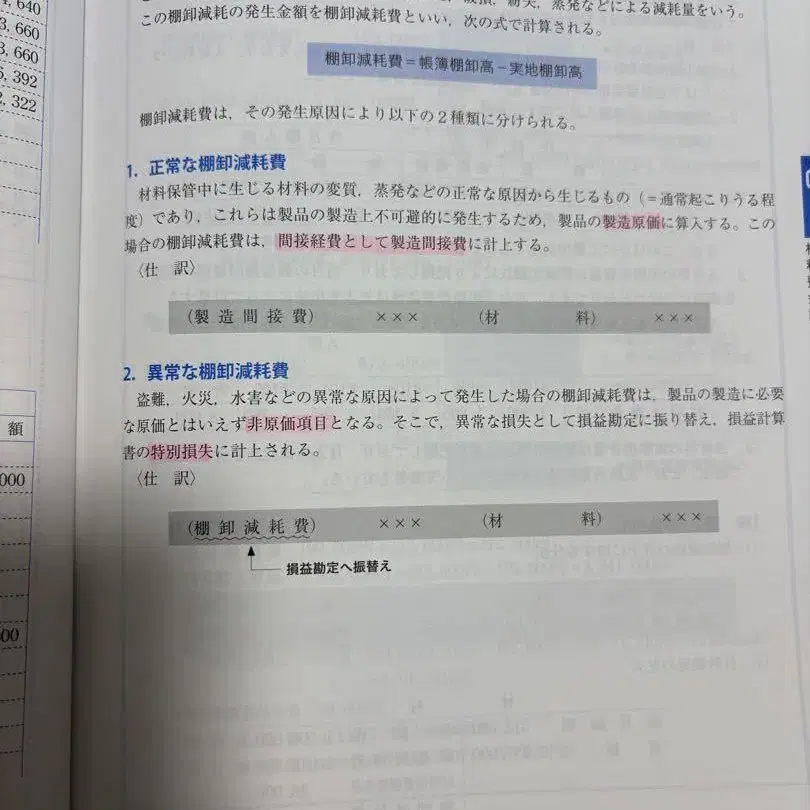 減耗量をいう。
この棚卸減耗の発生金額を棚卸減耗費といい，次の式で計算される。
棚卸減耗費＝帳簿棚卸高－実地棚卸高
棚卸減耗費は，その発生原因により以下の２種類に分けられる。
1. 正常な棚卸減耗費
材料保管中に生じる材料の変質，蒸発などの正常な原因から生じるもの（＝通常起こりうる程
度）であり，これらは製品の製造上不可避的に発生するため，製品の製造原価に算入する。この
場合の棚卸減耗費は，間接経費として製造間接費に計上する。
〈仕　訳〉
（製 造 間 接 費）　×××　（材　　　料）　×××
2. 異常な棚卸減耗費
盗難，火災，水害などの異常な原因によって発生した場合の棚卸減耗費は，製品の製造に必要
な原価とはいえず非原価項目となる。そこで，異常な損失として損益勘定に振り替え，損益計算
書の特別損失に計上される。
〈仕　訳〉
（棚 卸 減 耗 費）　×××　（材　　　料）　×××
損益勘定へ振替え
640
3,660
3,660
5,392
2,322
額
000
00